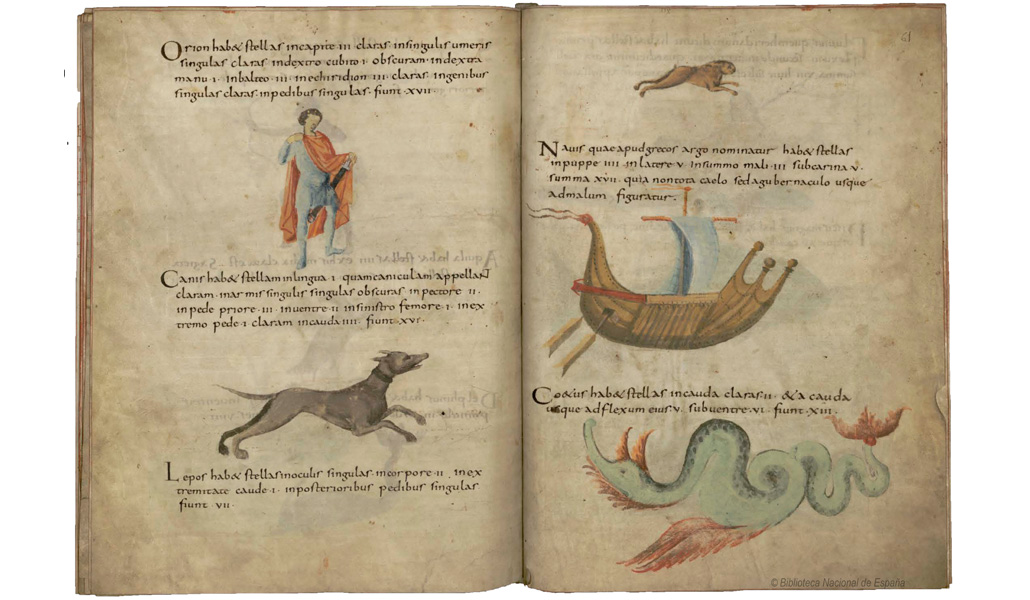 Orion hab& stellas incapite·III· claras insingulis umeris
singulas claras indextro cubito·I· obscuram·indextra
manu·I· inbalteo·III·inechiridion·III· claras· ingenibus
singulas claras·inpedibus singulas· fiunt·XVII
Canis hab& stellam inlingua·I· quamcaniculam appellant
claram· inarmis singulis singulas obscuras inpectore·II·
inpede priore·III· inventre·II· insinistro femore·I· inex
tremo pede·I· claram incauda·IIII· fiunt·XVI·
Lepos hab& stellasinoculis singulas·incorpore·II· inex
tremitate caude·I· inposterioribus pedibus singulas
fiunt·VII·
61
Nauis quae apudgrecos argo nominatur hab& stellas
inpuppe·IIII· inlatere·V· insummo mali·III· subcarina·V·
summa XVII· quia nontota caelo sedagubernaculo usque
admalum figuratur·
hab& stellas incauda claras·II· &a cauda
usque adflexum eius·V· subventre·VI· fiunt·XIII·
© Biblioteca Nacional de España